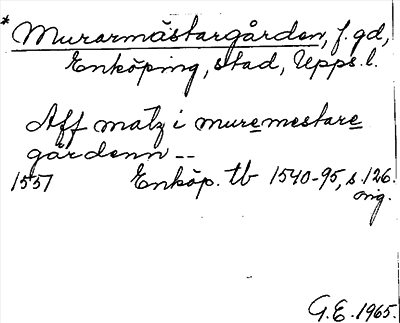 * Murarmästargården, f. gd,
Enköping, stad, Upps. l.
Aff matz i muremestare
gårdenn --
1557 Enköp. tb 1540-95, s. 126.
orig.
G.E. 1965.